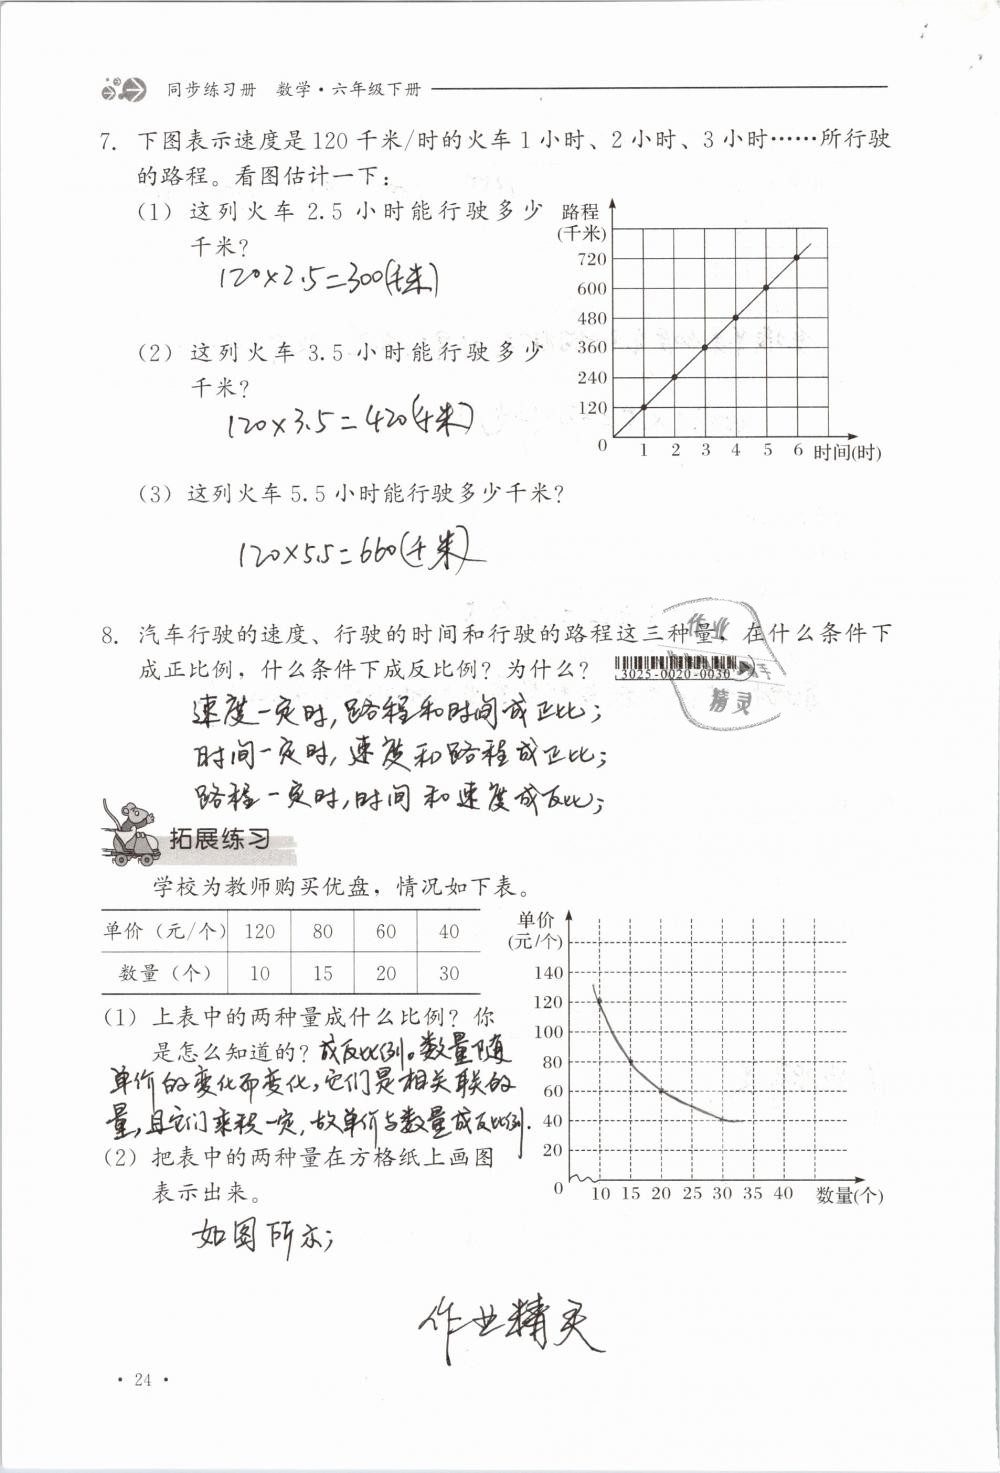 同步练习册 数学·六年级下册
7. 下图表示速度是120千米/时的火车1小时、2小时、3小时……所行驶
的路程。看图估计一下：
(1) 这列火车 2.5 小时能行驶多少
千米？
120×2.5=300(千米)
(2) 这列火车 3.5 小时能行驶多少
千米？
120×3.5=420(千米)
路程
(千米)
720
600
480
360
240
120
0
1 2 3 4 5 6 时间(时)
(3) 这列火车5.5小时能行驶多少千米？
120×5.5=660(千米)
8. 汽车行驶的速度、行驶的时间和行驶的路程这三种量，在什么条件下
成正比例，什么条件下成反比例？为什么？
3025-0020-0030
作业
精灵
速度一定时,路程和时间成正比;
时间一定时,速度和路程成正比;
路程一定时,时间和速度成反比;
拓展练习
学校为教师购买优盘，情况如下表。
单价（元/个） 120 80 60 40
数量（个） 10 15 20 30
(1) 上表中的两种量成什么比例？你
是怎么知道的？成反比例。数量随
单价的变化而变化,它们是相关联的
量,且它们乘积一定,故单价与数量成反比例.
(2) 把表中的两种量在方格纸上画图
表示出来。
如图所示;
单价
(元/个)
140
120
100
80
60
40
20
0
10 15 20 25 30 35 40 数量(个)
作业精灵
·24·